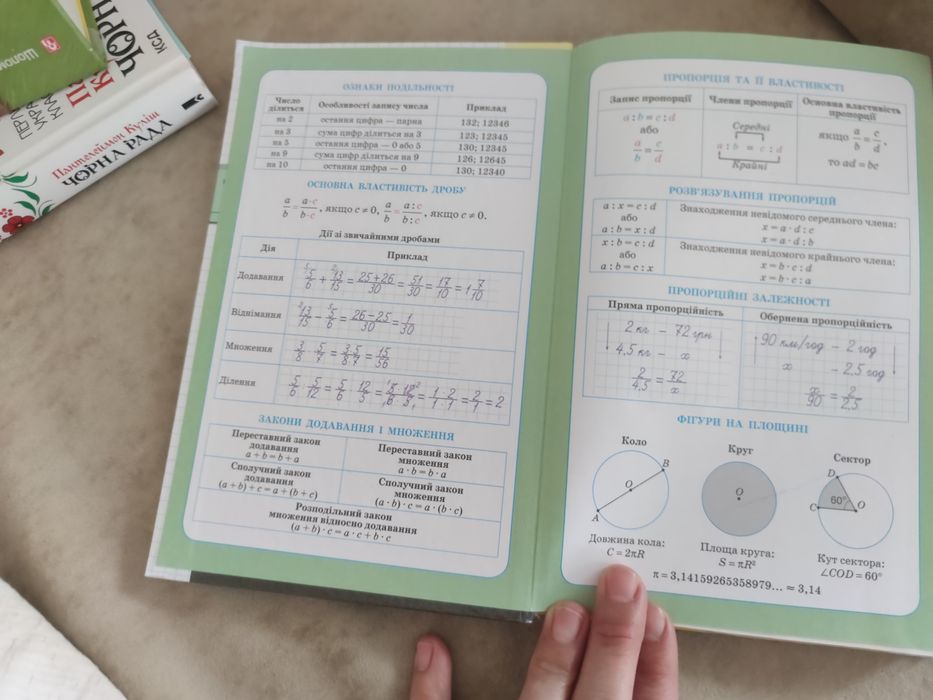 Шапом
ЧОРН
КСД
ПЕРЛ
УКРА
КЛАС
Пантелеймон Куліш
ЧОРНА РАДА
ОЗНАКИ ПОДІЛЬНОСТІ
Число ділиться | Особливості запису числа | Приклад
на 2 | остання цифра — парна | 132; 12346
на 3 | сума цифр ділиться на 3 | 123; 12345
на 5 | остання цифра — 0 або 5 | 130; 12345
на 9 | сума цифр ділиться на 9 | 126; 12645
на 10 | остання цифра — 0 | 130; 12340
ОСНОВНА ВЛАСТИВІСТЬ ДРОБУ
a/b = a·c/b·c, якщо c ≠ 0, a/b = a:c/b:c, якщо c ≠ 0.
Дії зі звичайними дробами
Дія | Приклад
Додавання | 5/6 + 13/15 = 25+26/30 = 51/30 = 17/10 = 1 7/10
Віднімання | 13/15 − 5/6 = 26−25/30 = 1/30
Множення | 3/8 · 5/7 = 3·5/8·7 = 15/56
Ділення | 5/6 : 5/12 = 5/6 · 12/5 = 5·12/6·5 = 1·2/1·1 = 2/1 = 2
ЗАКОНИ ДОДАВАННЯ І МНОЖЕННЯ
Переставний закон
додавання
a + b = b + a
Переставний закон
множення
a · b = b · a
Сполучний закон
додавання
(a + b) + c = a + (b + c)
Сполучний закон
множення
(a · b) · c = a · (b · c)
Розподільний закон
множення відносно додавання
(a + b) · c = a · c + b · c
ПРОПОРЦІЯ ТА ЇЇ ВЛАСТИВОСТІ
Запис пропорції | Члени пропорції | Основна властивість пропорції
a : b = c : d
або
a/b = c/d
Середні
a : b = c : d
Крайні
якщо a/b = c/d,
то ad = bc
РОЗВ'ЯЗУВАННЯ ПРОПОРЦІЙ
a : x = c : d
або
a : b = x : d
Знаходження невідомого середнього члена:
x = a · d : c
x = a · d : b
x : b = c : d
або
a : b = c : x
Знаходження невідомого крайнього члена:
x = b · c : d
x = b · c : a
ПРОПОРЦІЙНІ ЗАЛЕЖНОСТІ
Пряма пропорційність | Обернена пропорційність
2 кг – 72 грн
4,5 кг – x
2/4,5 = 72/x
90 км/год – 2 год
x – 2,5 год
x/90 = 2/2,5
ФІГУРИ НА ПЛОЩИНІ
Коло
B
O
A
Довжина кола:
C = 2πR
Круг
O
Площа круга:
S = πR²
Сектор
D
60°
C
O
Кут сектора:
∠COD = 60°
π = 3,14159265358979... ≈ 3,14